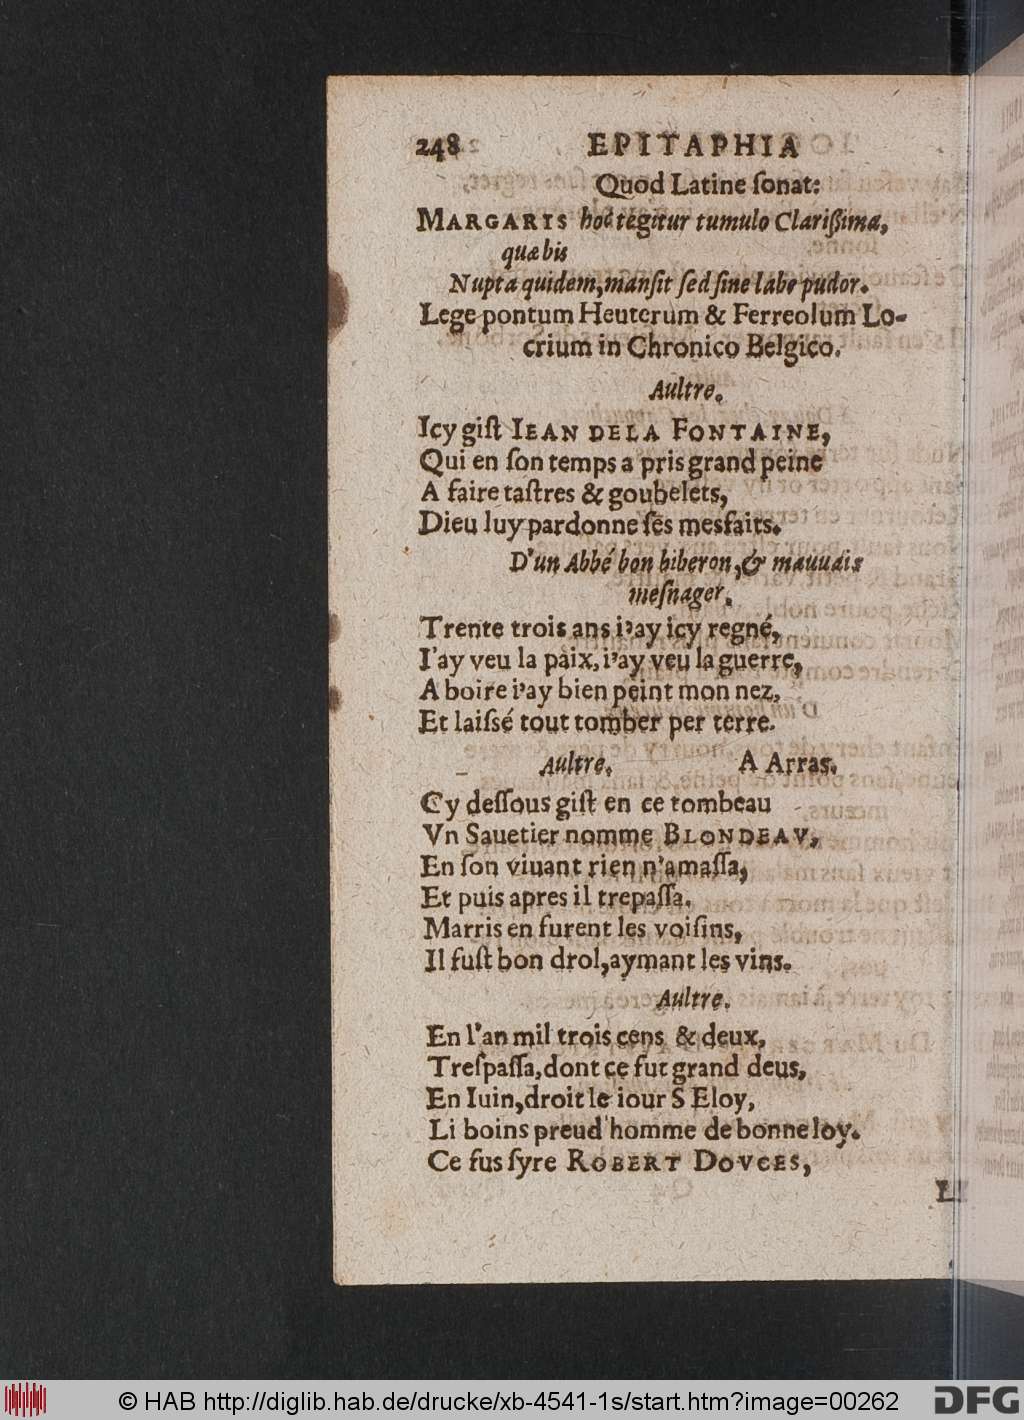 248 EPITAPHIA
Quod Latine ſonat:
MARGARIS hoc tegitur tumulo Clarißima,
quæ bis
Nupta quidem, manſit ſed ſine labe pudor.
Lege pontum Heuterum & Ferreolum Lo-
crium in Chronico Belgico.
Aultre.
Icy giſt IEAN DE LA FONTAINE,
Qui en ſon temps a pris grand peine
A faire taſtres & goubelets,
Dieu luy pardonne ſes mesfaits.
D'un Abbé bon biberon, & mauuais
meſnager.
Trente trois ans i'ay icy regné,
I'ay veu la paix, i'ay veu la guerre,
A boire i'ay bien peint mon nez,
Et laiſsé tout tomber per terre.
Aultre. A Arras.
Cy deſſous giſt en ce tombeau
Vn Sauetier nomme BLONDEAV,
En ſon viuant rien n'amaſſa,
Et puis apres il trepaſſa.
Marris en furent les voiſins,
Il fuſt bon drol, aymant les vins.
Aultre.
En l'an mil trois cens & deux,
Treſpaſſa, dont ce fut grand deus,
En Iuin, droit le iour S Eloy,
Li boins preud'homme de bonne loy.
Ce fus ſyre ROBERT DOVCES,
LI
© HAB http://diglib.hab.de/drucke/xb-4541-1s/start.htm?image=00262 DFG